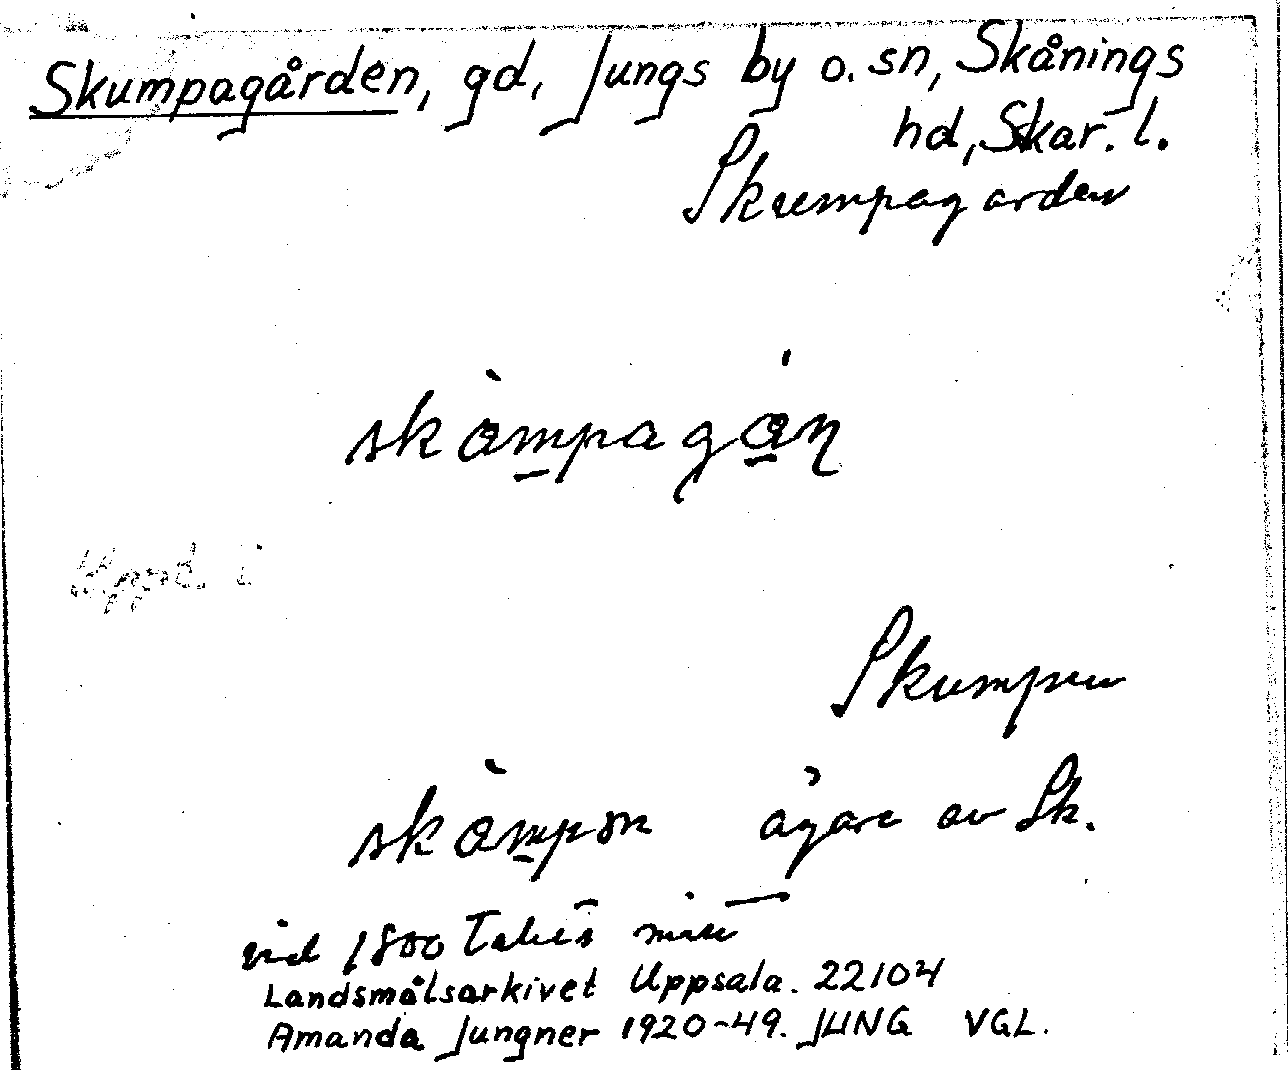 Skumpagården, gd, Jungs by o. sn, Skånings
hd, Skar. l.
Skumpagarden
Uppt. i
Skumpen
ägare av Sk.
vid 1800 talets mitt
Landsmålsarkivet Uppsala. 22104
Amanda Jungner 1920-49. JUNG VGL.